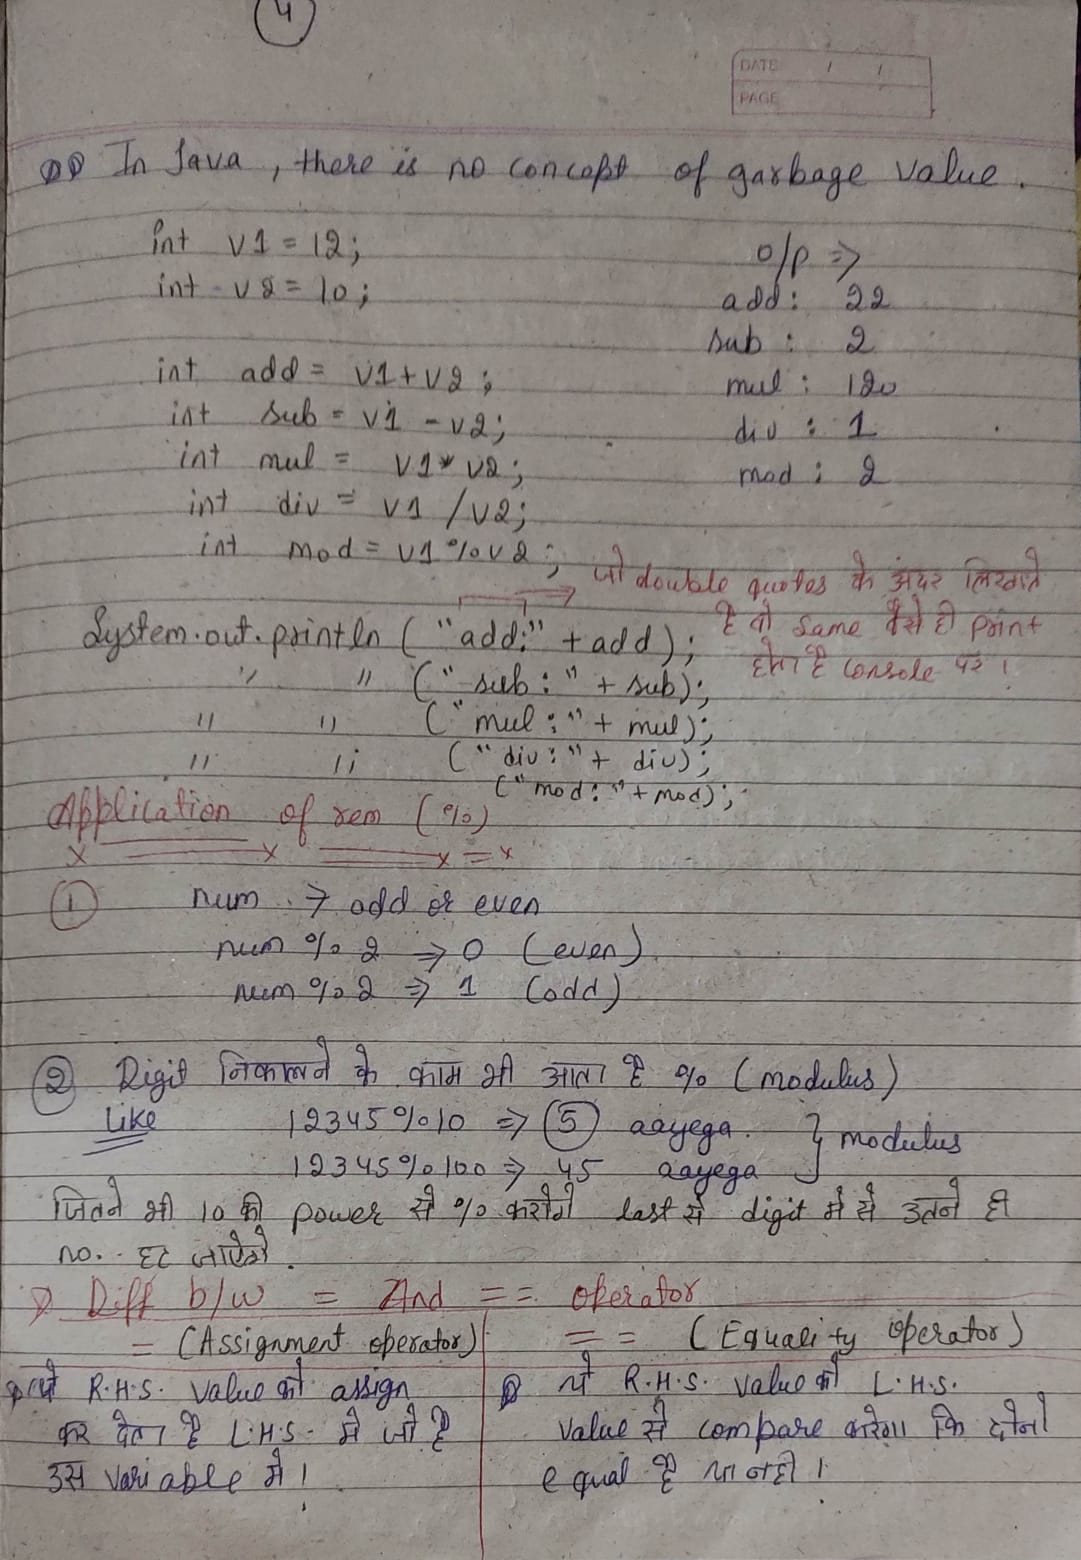 4
DATE / /
PAGE
In Java, there is no concept of garbage value.
int v1 = 12;
int v2 = 10;
o/p ⇒
add: 22
sub: 2
mul: 120
div: 1
mod: 2
int add = v1+v2;
int sub = v1 - v2;
int mul = v1* v2;
int div = v1 /v2;
int mod = v1 % v2;
जो double quotes के अंदर लिखते
है वो same वैसे ही print
होता है console पर।
System.out.println ("add:" + add);
" " ("sub:" + sub);
" " ("mul:" + mul);
" " ("div:" + div);
("mod:" + mod);
Application of rem (%)
① num → odd or even
num % 2 ⇒ 0 (even)
num % 2 ⇒ 1 (odd)
② Digit निकालने के काम भी आता है % (modulus)
Like 12345%10 ⇒ 5 aayega.
12345%100 ⇒ 45 aayega } modulus
जितने भी 10 की power से % करोगे last से digit में से उतने ही
no. हट जाऐगे.
Diff b/w = And == operator
= (Assignment operator)
ये R.H.S. value को assign
कर देता है L.H.S. में जो है
उस variable में।
== (Equality operator)
ये R.H.S. value को L.H.S.
value से compare करेगा कि दोनो
equal है या नही।